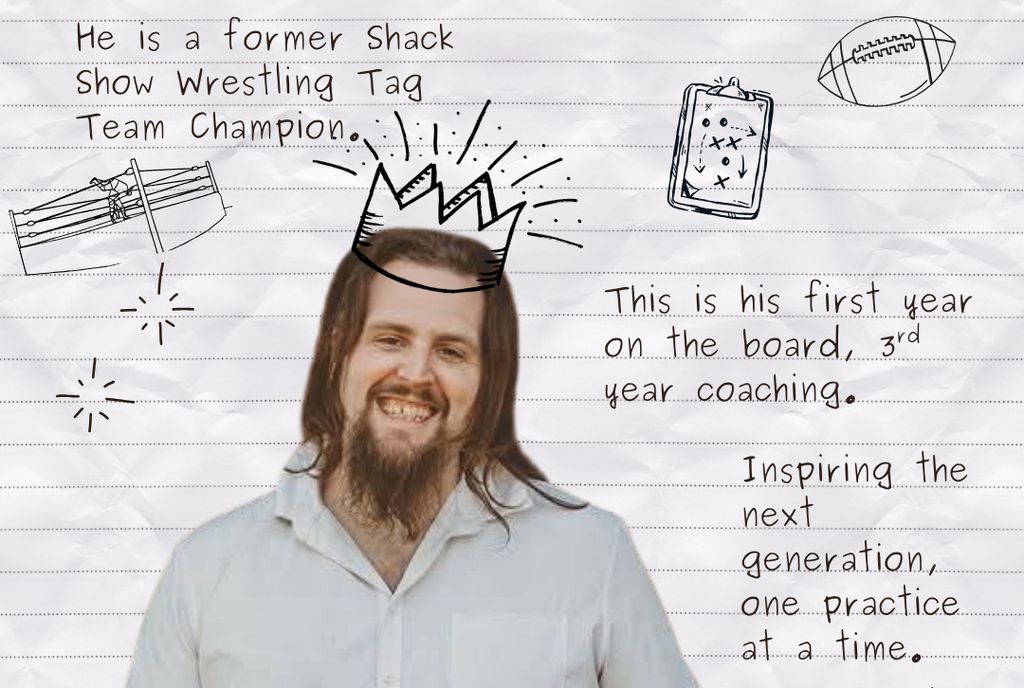 He is a former Shack
Show Wrestling Tag
Team Champion.
This is his first year
on the board, 3rd
year coaching.
Inspiring the
next
generation,
one practice
at a time.